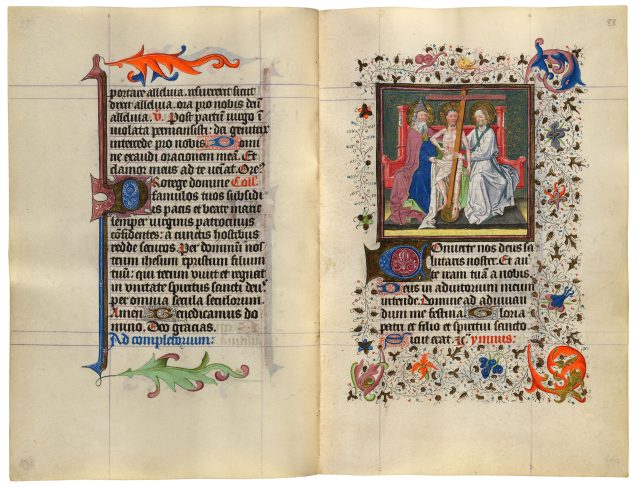 portare alleluia. resurrexit sicut
dixit alleluia. ora pro nobis deū
alleluia. V. Post partū uirgo ī
uiolata permansisti: dei genitrix
intercede pro nobis. Domi
ne exaudi oracionem meā. Et
clamor meus ad te ueīat. Ore⁹
Protege domine Coll.
famulos tuos subsidi
is pacis et beate marie
semper uirginis patrociniis
cōfidentes: a cunctis hostibus
redde securos. Per dominū nos
trum ihesum xpistum filium
tuū: qui tecum uiuit et regnat
in unitate spiritus sancti de⁹
per omnia secula seculorum.
Amen. Benedicamus do
mino. Deo gracias.
Ad completorium:
88
Conuerte nos deus sa
lutaris noster. Et au
erte iram tuā a nobis
Deus in adiutorium meum
intende. Domine ad adiuuan
dum me festina Gloria
patri et filio et spiritui sancto
Sicut erat. ⁊c. ymnus: